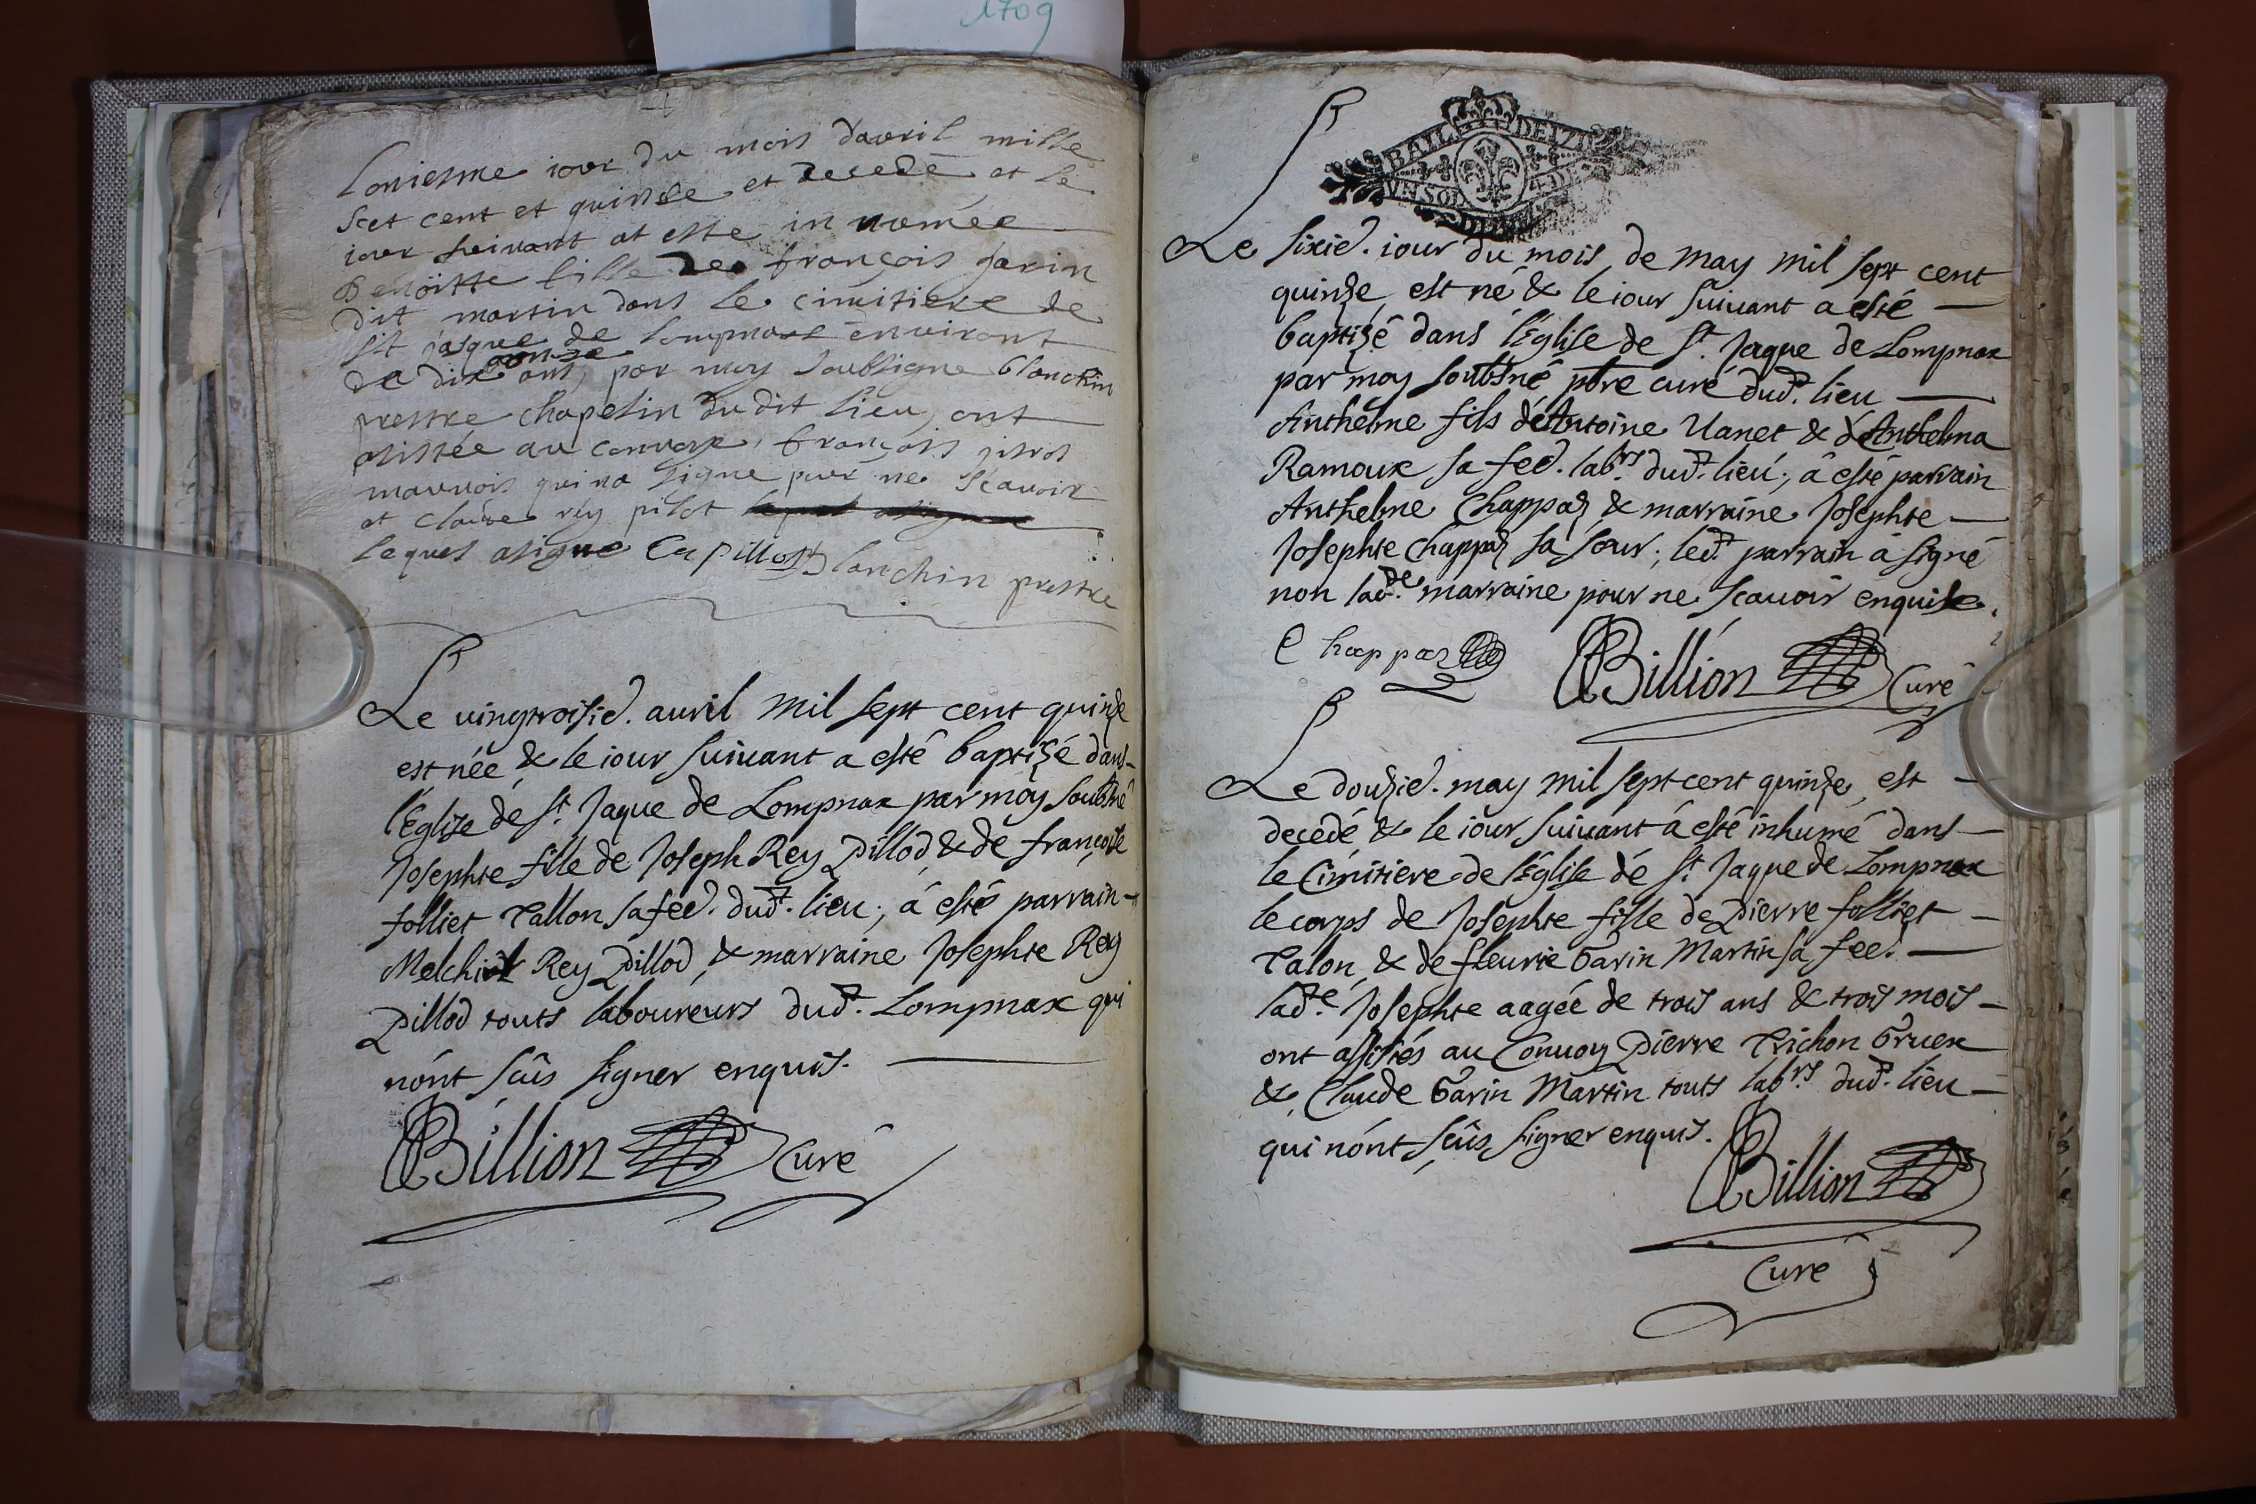 1709
Loniesme iour du mois davril mille
Set cent et quinse et decedé et le
iour suivant at este in numée
Benoitte fille de françois garin
dit martin dans le cimitiere de
St jasque de lompnast environt
de dix onse ans, par moy soubsigne blanchin
prestre chapelin du dit lieu, ont
asistée au convoye, françois
qui na signe pour ne scavoir
et claude rey pilot
leques asigne C R pillost Blanchin prestre
Le vingtroisie. avril mil sept cent quinze
est née & le iour suivant a esté baptizé dans
l'Eglise de St. Jaque de Lompnax par moy soubsné
Josephte fille de Joseph Rey Pillod, & de françoise
folliet Tallon sa fee. dud. lieu; á esté parrain
Melchior Rey Pillod, & marraine Josephte Rey
Pillod touts laboureurs dud. Lompnax qui
nónt sçûs signer enquis.
Billion Curé
BAIL DE 1715
VN SOL 4 DE
Le sixie. iour du mois de may mil sept cent
quinze, est né & le iour suivant a ésté
baptizé dans l'Eglise de St. Jaque de Lompnax
par moy soubsné pbre curé dud. lieu
Anthelme fils d'Antoine Vanet & d'Anthelma
Ramoux sa fee. labrs. dud. lieu; á esté parrain
Anthelme Chappaz & marraine Josephte
Josephte Chappaz sa sœur; led. parrain á signé
non lade. marraine pour ne scavoir enquise.
Chappaz Billion Curé
Le douzie. may mil sept cent quinze, est
decedé & le iour suivant á esté inhumé dans
le Cimitiere de l'Eglise dé St. Jaque de Lompnax
le corps de Josephte fille de Pierre folliet
Talon & de fleurie Garin Martin sa fee.
ladte. Josephte aagée de trois ans & trois mois
ont assistés au Convoy Pierre Trichon Gruex
& Claude Garin Martin touts labrs. dud. lieu
qui nónt sçûs signer enquis.
Billion
Curé